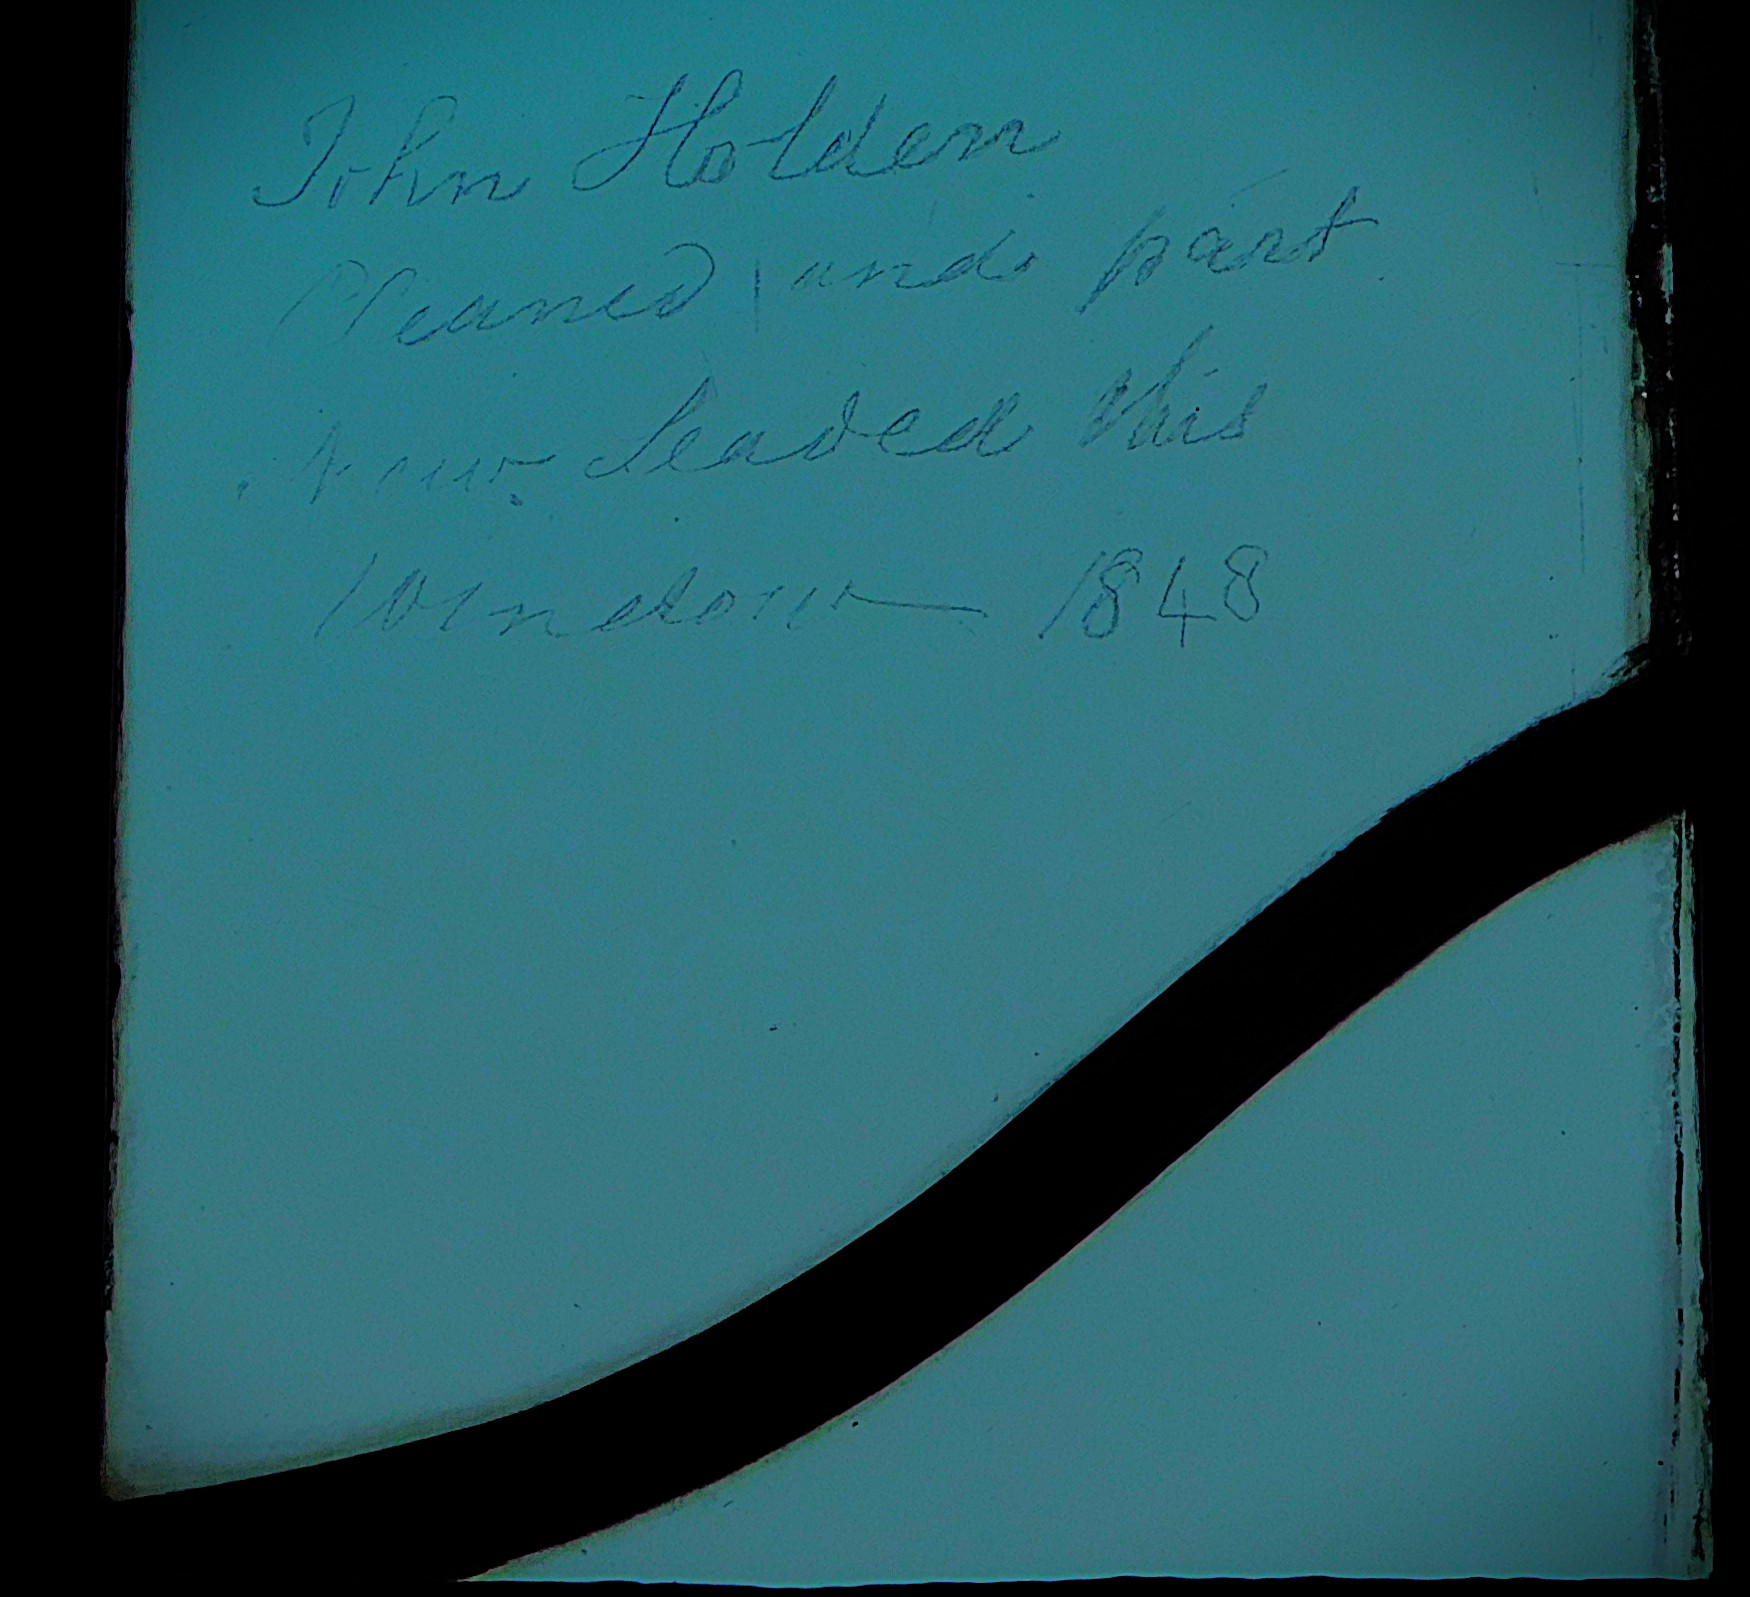 John Holden
Cleaned and part
new leaded this
Window 1848